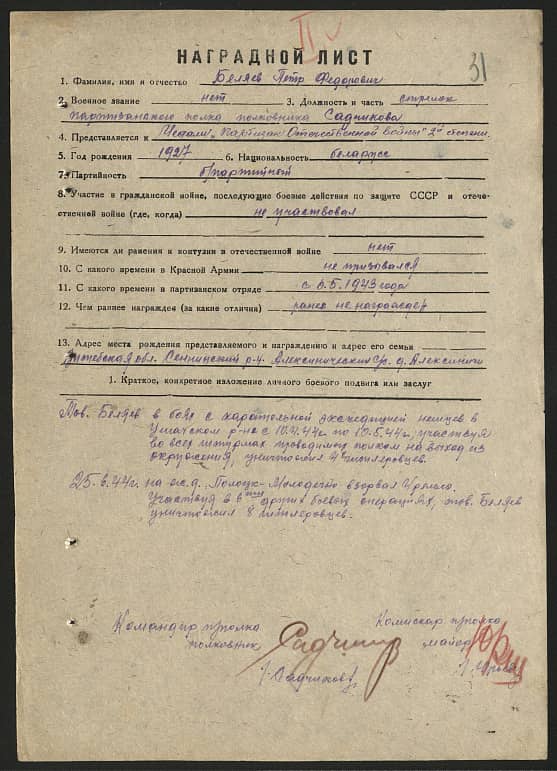 II
31
НАГРАДНОЙ ЛИСТ
1. Фамилия, имя и отчество Беляев Петр Федорович
2. Военное звание нет 3. Должность и часть стрелок
партизанского полка полковника Садчикова
4. Представляется к Медали „Партизан Отечественной Войны" 2й степени.
5. Год рождения 1927 6. Национальность беларусс
7. Партийность б/партийный
8. Участие в гражданской войне, последующие боевые действия по защите СССР и отече-
ственной войне (где, когда) не участвовал
9. Имеются ли ранения и контузии в отечественной войне нет
10. С какого времени в Красной Армии не призывался
11. С какого времени в партизанском отряде с 6.5.1943 года
12. Чем раннее награжден (за какие отличия) ранее не награжден
13. Адрес места рождения представляемого и награждению и адрес его семьи
Витебская обл. Сеннинский р-н. Алексиничский с/с. д. Алексиничи
1. Краткое, конкретное изложение личного боевого подвига или заслуг
Тов. Беляев в боях с карательной экспедицией немцев в
Ушачском р-не с 10.4.44г. по 10.5.44г. участвуя
во всех штурмах проводимых полком на выход из
окружения, уничтожил 4 гитлеровцев.
25.6.44г. на ж.д. Полоцк-Молодечно взорвал рельса.
Участвуя в 6ти других боевых операциях, тов. Беляев
уничтожил 8 гитлеровцев.
Командир п/полка
полковник
/Садчиков/
Комиссар п/полка
майор